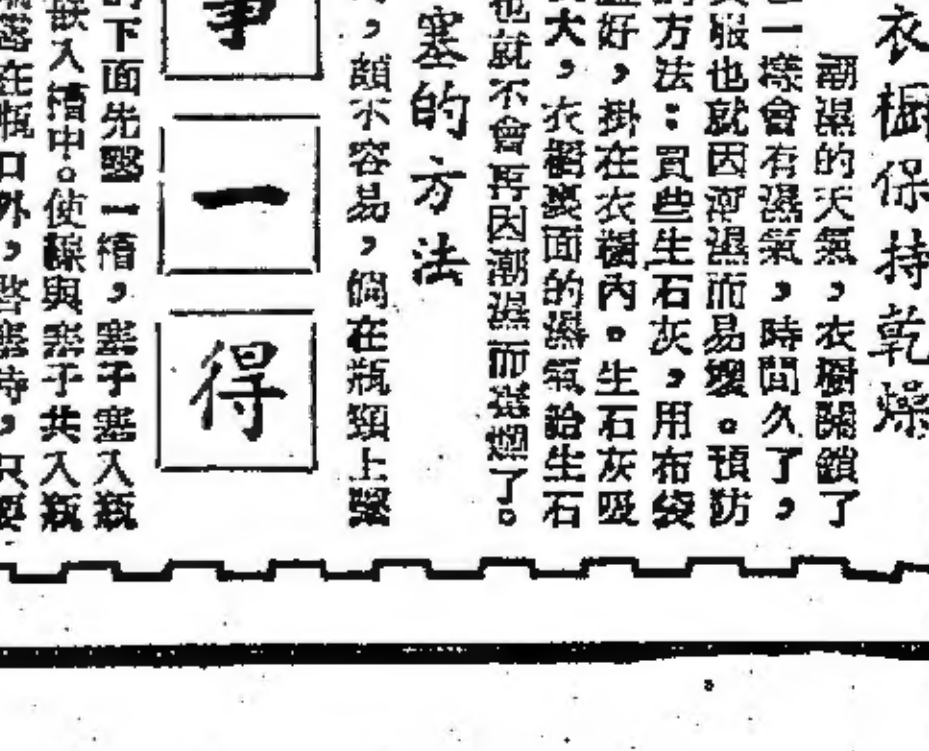 衣橱保持乾燥
潮濕的天氣，衣橱關鎖了
一樣會有濕氣，時間久了，
服也就因潮濕而易壞。預防
方法：買些生石灰，用布袋
好，掛在衣橱內。生石灰吸
大，衣橱裏面的濕氣給生石
也就不會再因潮濕而霉爛了。
塞的方法
，頗不容易，倘在瓶頸上竪
事
一
得
下面先鑿一槽，塞子塞入瓶
嵌入槽中。使線與塞子共入瓶
露在瓶口外，啓塞時，只要